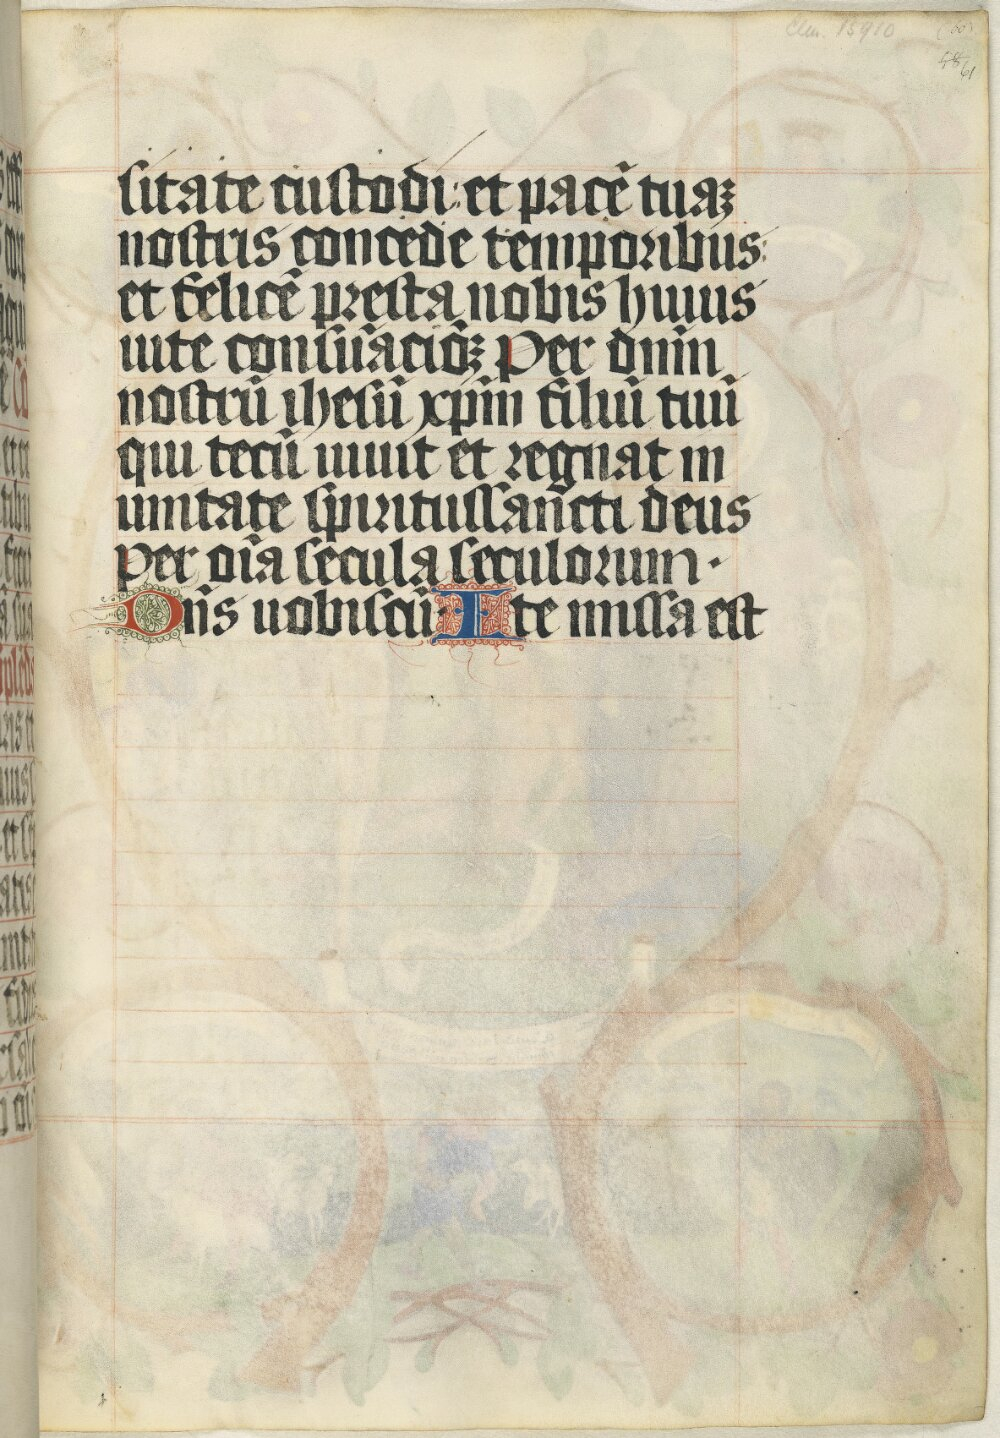 Clm. 15910
61
sitate custodi: et pacē tuaꝫ
nostris concede temporibus:
et felicē presta nobis huius
uite conſuacōꝫ Per dnm̄
nostrū ihesū xp̄m filiū tuū
qui tecū uiuit et regnat in
unitate spiritussancti deus
per oīa secula seculorum ·
Dn̄s uobiscū· Ite missa est